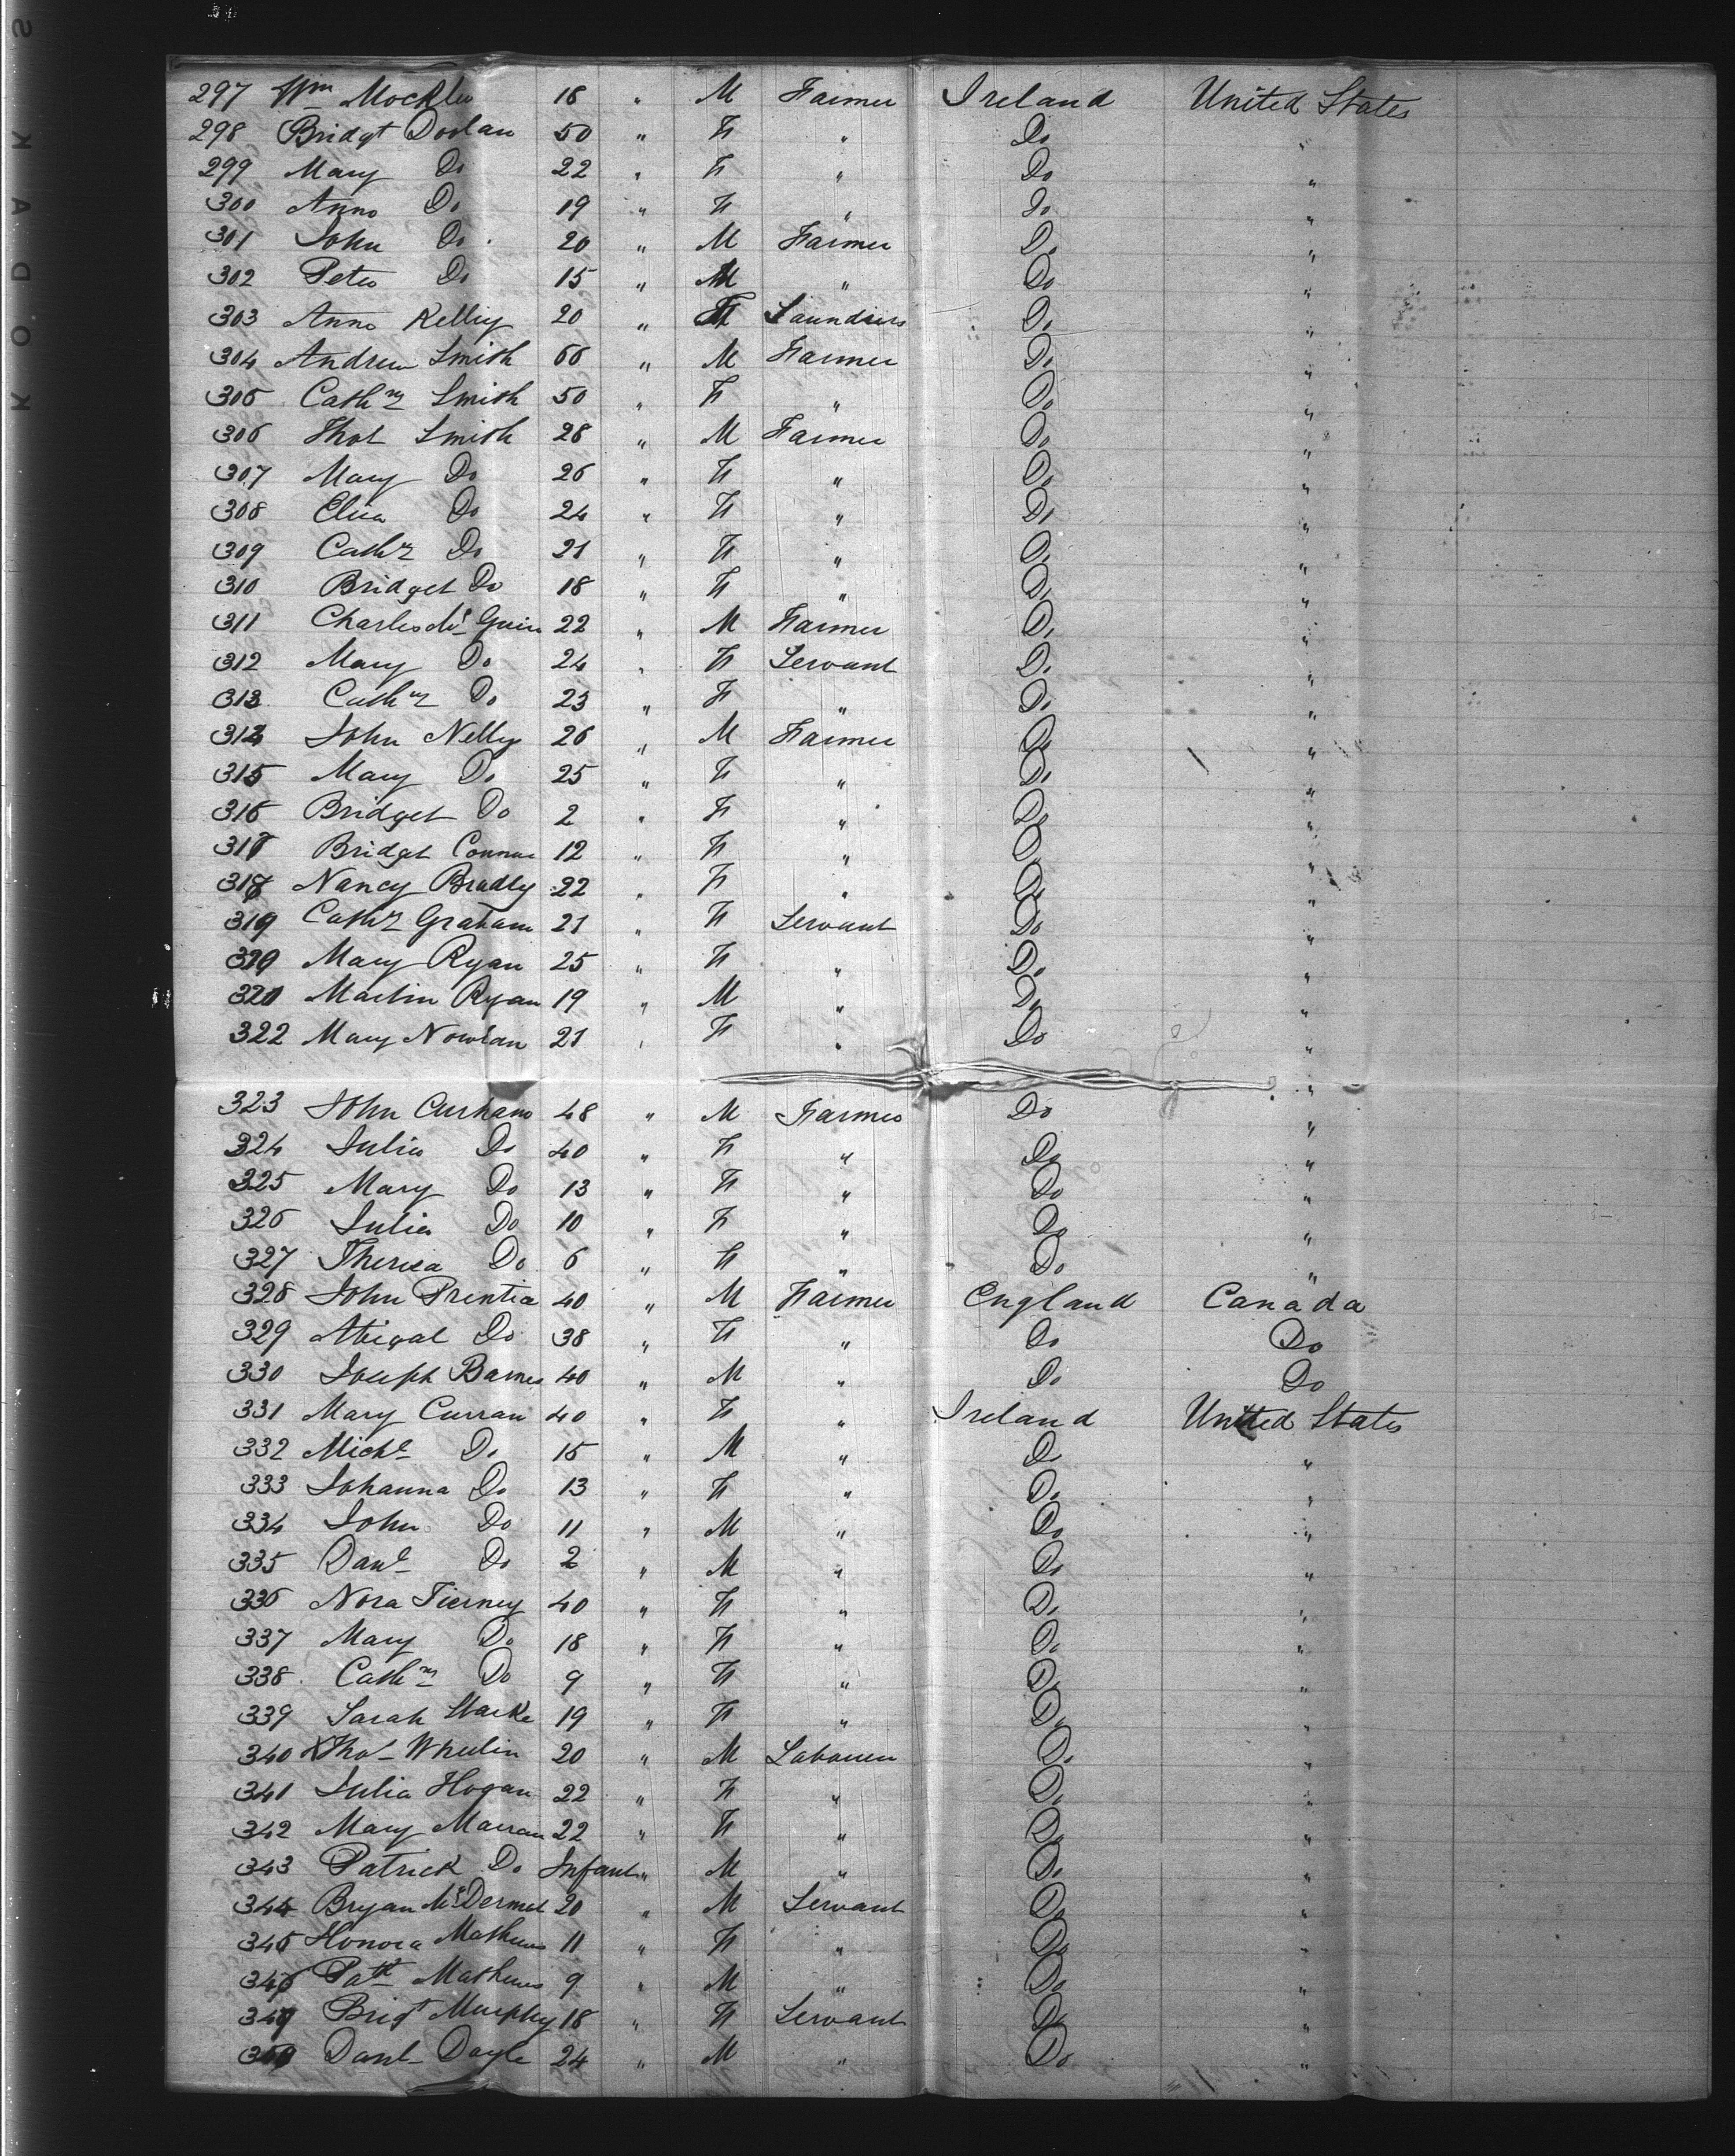 KODAK S
297 Wm Mockler 18 " M Farmer Ireland United States
298 Bridgt Doolan 50 " F " Do "
299 Mary Do 22 " F " Do "
300 Anne Do 19 " F " Do "
301 John Do 20 " M Farmer Do "
302 Peter Do 15 " M " Do "
303 Anne Kelly 20 " F Do "
304 Andrew Smith 66 " M Farmer Do "
305 Cathne Smith 50 " F " Do "
306 Thos Smith 28 " M Farmer Do "
307 Mary Do 26 " F " Do "
308 Eliza Do 24 " F " Do "
309 Cathne Do 21 " F " Do "
310 Bridget Do 18 " F " Do "
311 Charles Mc Guire 22 " M Farmer Do "
312 Mary Do 24 " F Servant Do "
313 Cathne Do 23 " F " Do "
314 John Nelly 26 " M Farmer Do "
315 Mary Do 25 " F " Do "
316 Bridget Do 2 " F " Do "
317 Bridget Connor 12 " F " Do "
318 Nancy Bradly 22 " F " Do "
319 Cathne Graham 21 " F Servant Do "
320 Mary Ryan 25 " F " Do "
321 Martin Ryan 19 " M " Do "
322 Mary Nowlan 21 " F " Do "
323 John 48 " M Farmer Do "
324 Julia Do 40 " F " Do "
325 Mary Do 13 " F " Do "
326 Julia Do 10 " F " Do "
327 Theresa Do 6 " F " Do "
328 John Prentice 40 " M Farmer England Canada
329 Abigal Do 38 " F " Do Do
330 Joseph Barnes 40 " M " Do Do
331 Mary Curran 40 " F " Ireland United States
332 Michl Do 15 " M " Do "
333 Johanna Do 13 " F " Do "
334 John Do 11 " M " Do "
335 Danl Do 2 " M " Do "
336 Nora Tierney 40 " F " Do "
337 Mary Do 18 " F " Do "
338 Cathne Do 9 " F " Do "
339 Sarah Starke 19 " F " Do "
340 Thos Wheelin 20 " M Labourer Do "
341 Julia Hogan 22 " F " Do "
342 Mary 22 " F " Do "
343 Patrick Do Infant " M " Do "
344 Bryan McDermot 20 " M Servant Do "
345 Honora Mathews 11 " F " Do "
346 Patk Mathews 9 " M " Do "
Brigt Murphy 18 " F Servant Do "
Danl Doyle 24 " M " Do "